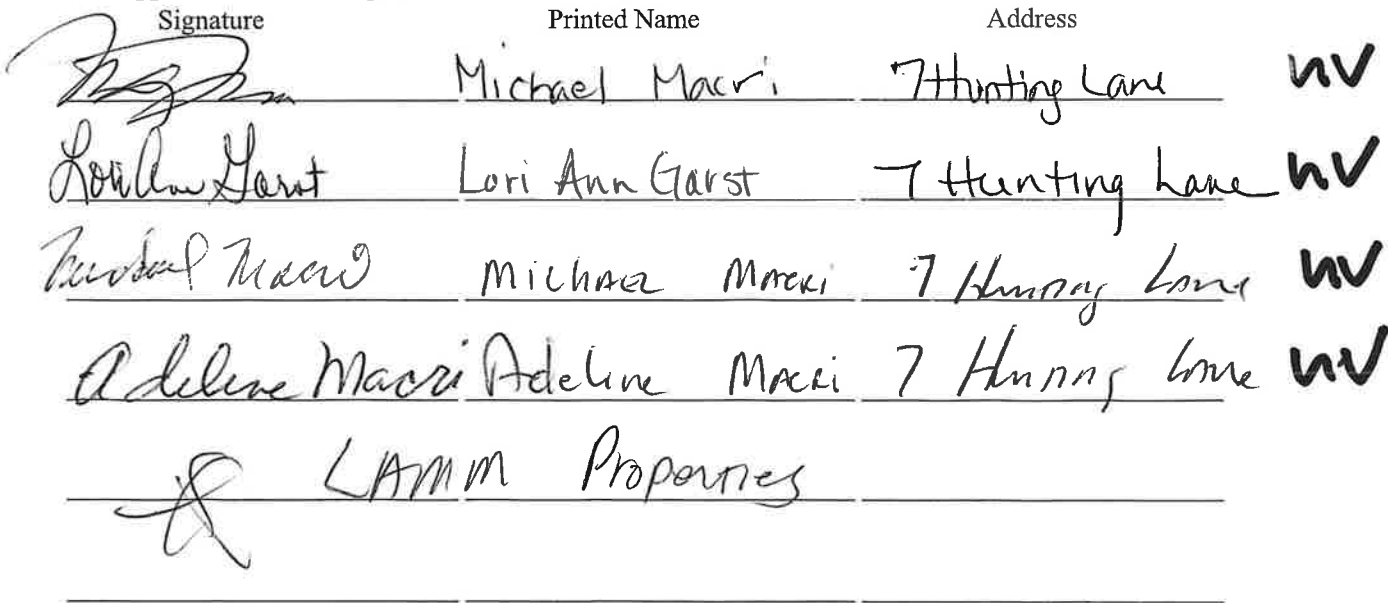 Signature Printed Name Address
Michael Macri 7 Hunting Lane NV
Lori Ann Garst Lori Ann Garst 7 Hunting Lane NV
Michael Macri Michael Macri 7 Hunting Lane NV
Adeline Macri Adeline Macri 7 Hunting Lane NV
LAMM Properties